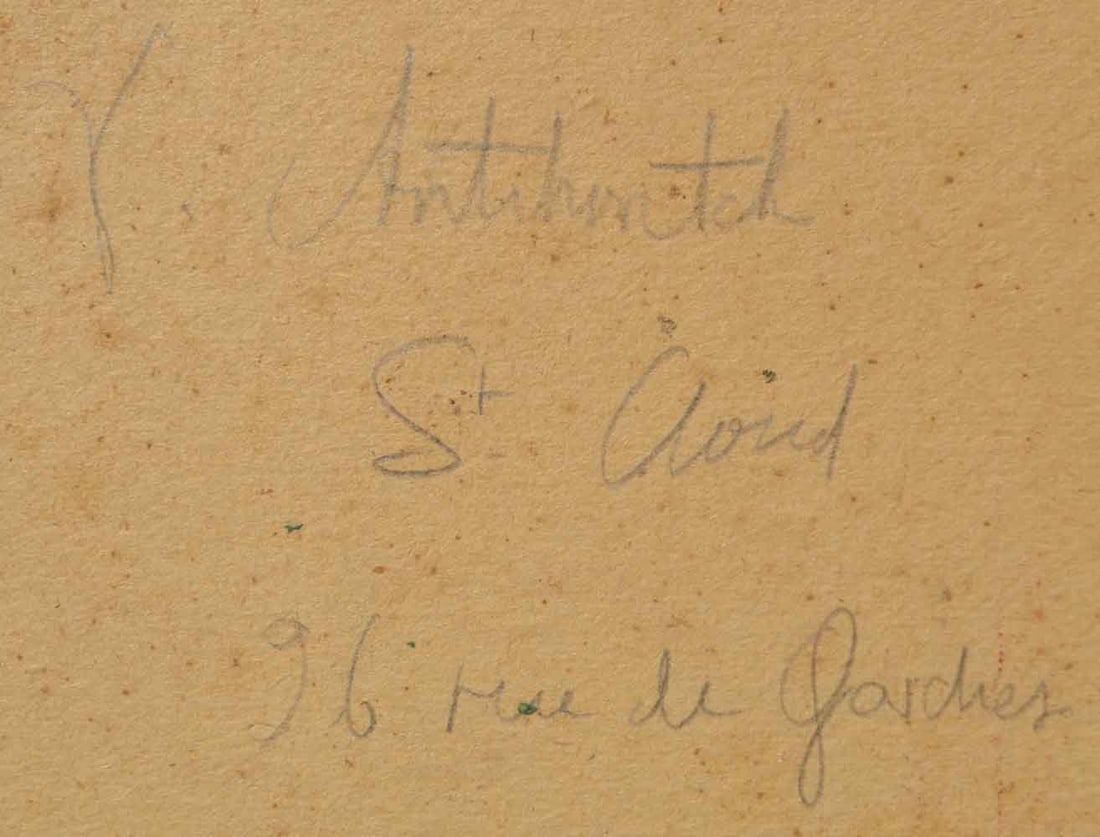 Y. Antihontch
St Cloud
96 rue de Garches